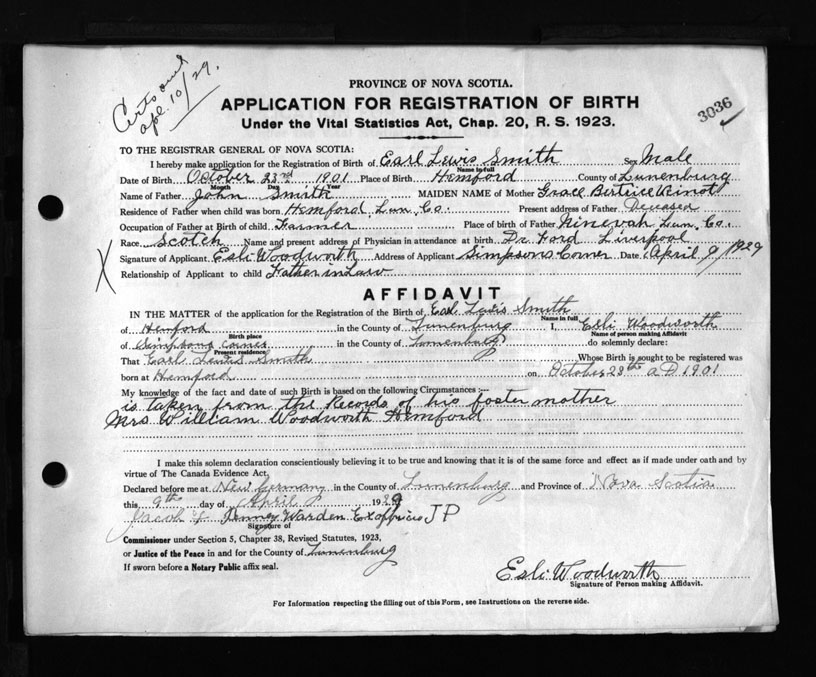 Certs
apl. 10/29.
3036
PROVINCE OF NOVA SCOTIA.
APPLICATION FOR REGISTRATION OF BIRTH
Under the Vital Statistics Act, Chap. 20, R. S. 1923.
TO THE REGISTRAR GENERAL OF NOVA SCOTIA:
I hereby make application for the Registration of Birth of Earl Lewis Smith Sex Male
Name in full
Date of Birth October 23rd 1901 Place of Birth Hemford County of Lunenburg
Month Day Year
Name of Father John Smith MAIDEN NAME of Mother Grace
Residence of Father when child was born Hemford Lun. Co. Present address of Father Deceased
Occupation of Father at Birth of child Farmer Place of birth of Father Ninevah Lun. Co.
Race Scotch Name and present address of Physician in attendance at birth Dr. Ford Liverpool
X Signature of Applicant Esli Woodworth Address of Applicant Simpsons Corner Date April 9/1929
Relationship of Applicant to child Father in Law
AFFIDAVIT
IN THE MATTER of the application for the Registration of the Birth of Earl Lewis Smith
Name in full
of Hemford in the County of Lunenburg I, Esli Woodworth
Birth place Name of person making Affidavit
of Simpsons Corner in the County of Lunenburg do solemnly declare:
Present residence
That Earl Lewis Smith Whose Birth is sought to be registered was
born at Hemford on October 23th A D 1901
My knowledge of the fact and date of such Birth is based on the following Circumstances:—
is taken from the Records of his foster mother
Mrs William Woodworth Hemford
I make this solemn declaration conscientiously believing it to be true and knowing that it is of the same force and effect as if made under oath and by
virtue of The Canada Evidence Act,
Declared before me at New Germany in the County of Lunenburg and Province of Nova Scotia
this 9th day of April 1929
Jacob Penney Warden Exofficio J P
Signature of
Commissioner under Section 5, Chapter 38, Revised Statutes, 1923,
or Justice of the Peace in and for the County of Lunenburg
If sworn before a Notary Public affix seal.
Esli Woodworth
Signature of Person making Affidavit.
For Information respecting the filling out of this Form, see Instructions on the reverse side.